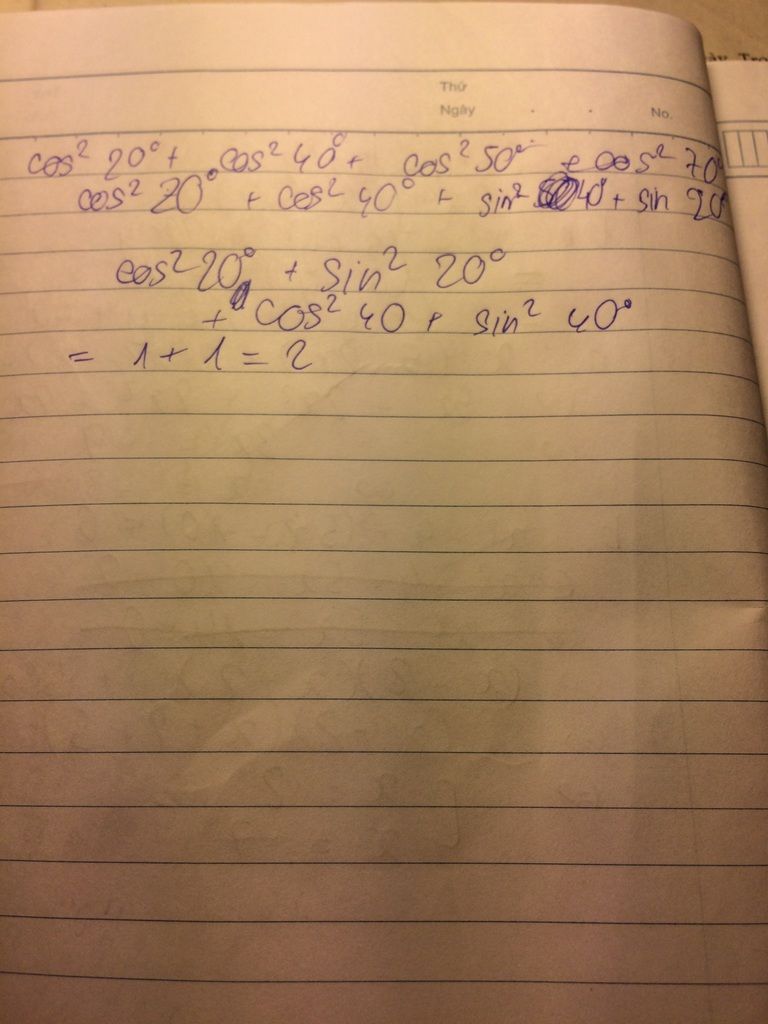 Thứ
Ngày . . No.
cos² 20° + cos² 40° + cos² 50° + cos² 70°
cos² 20° + cos² 40° + sin² 40° + sin 20°
cos² 20° + sin² 20°
+ cos² 40 + sin² 40°
= 1 + 1 = 2